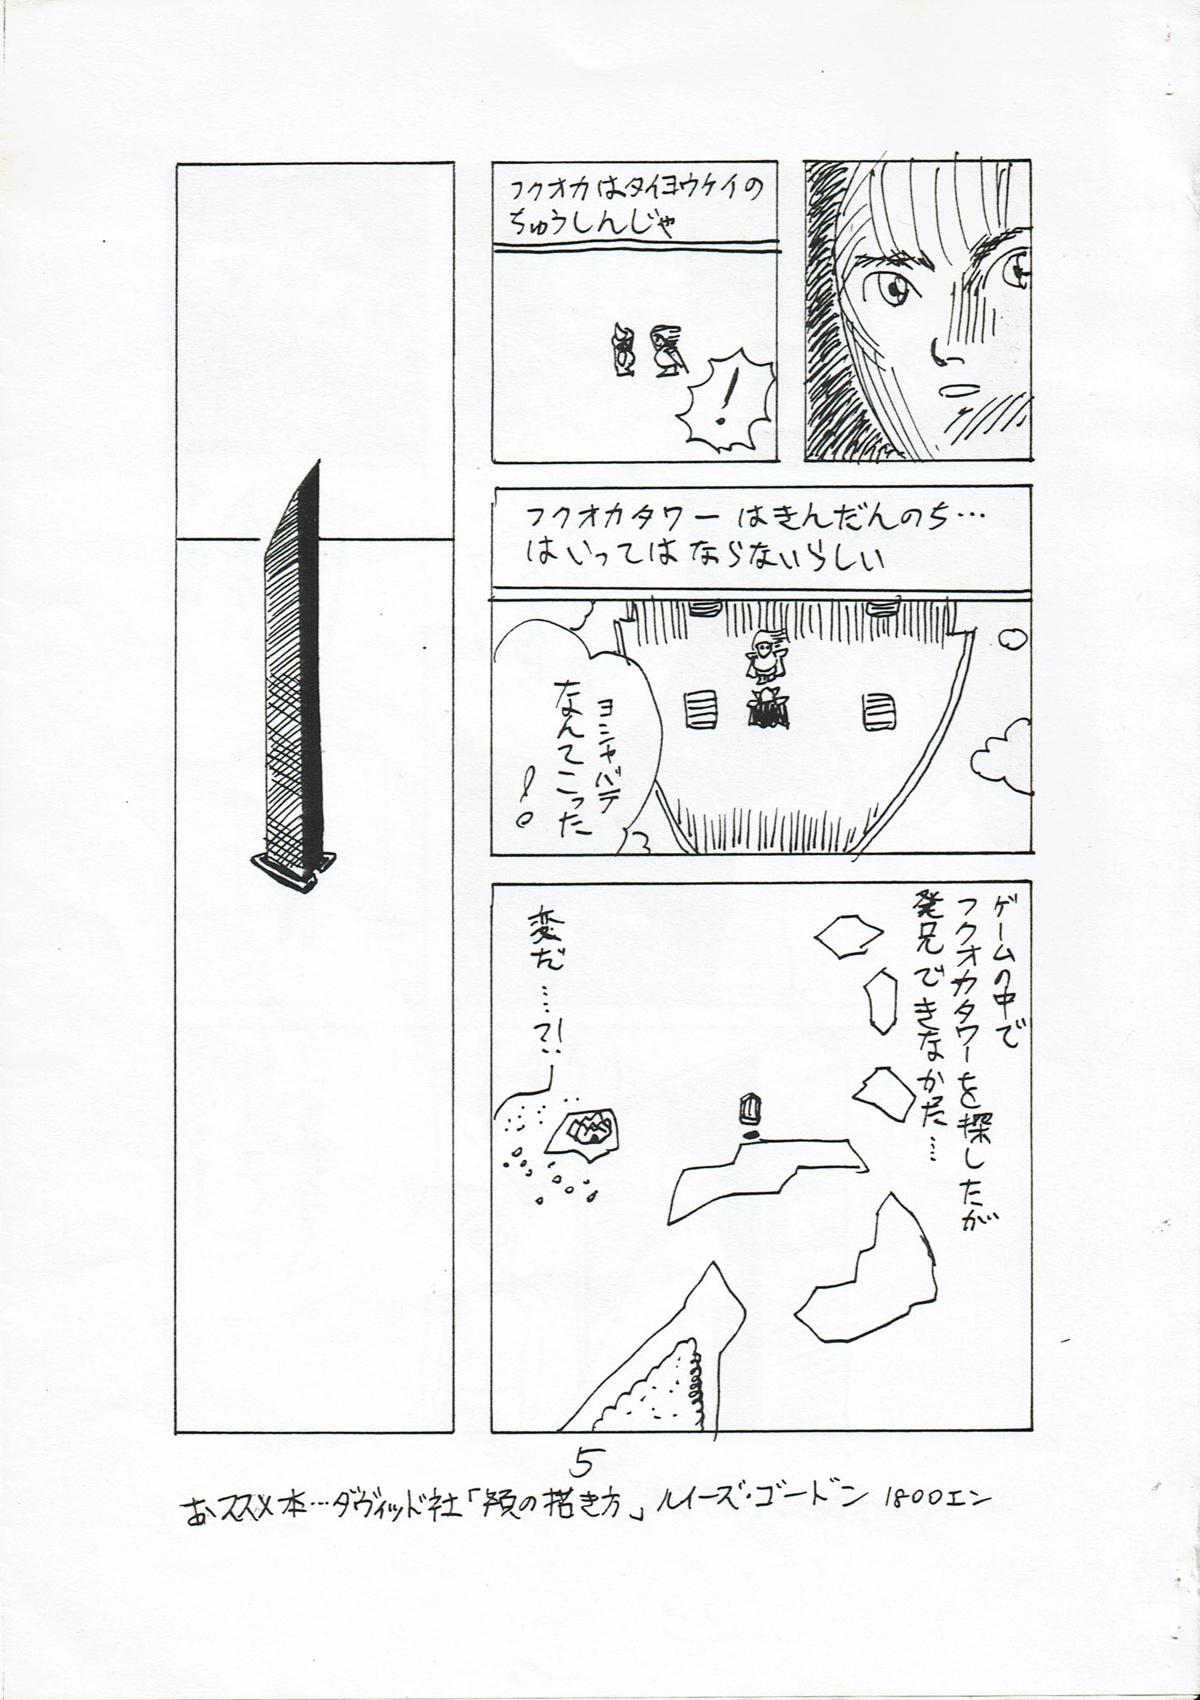 フクオカはタイヨウケイの
ちゅうしんじゃ
！
フクオカタワーはきんだんのち…
はいってはならないらしい
ヨシャバテ
なんてこった
！。
ゲームの中で
フクオカタワーを探したが
発見できなかた……
変だ……て!!
5
おススメ本…ダヴィッド社「顔の描き方」ルイーズ・ゴードン 1800エン